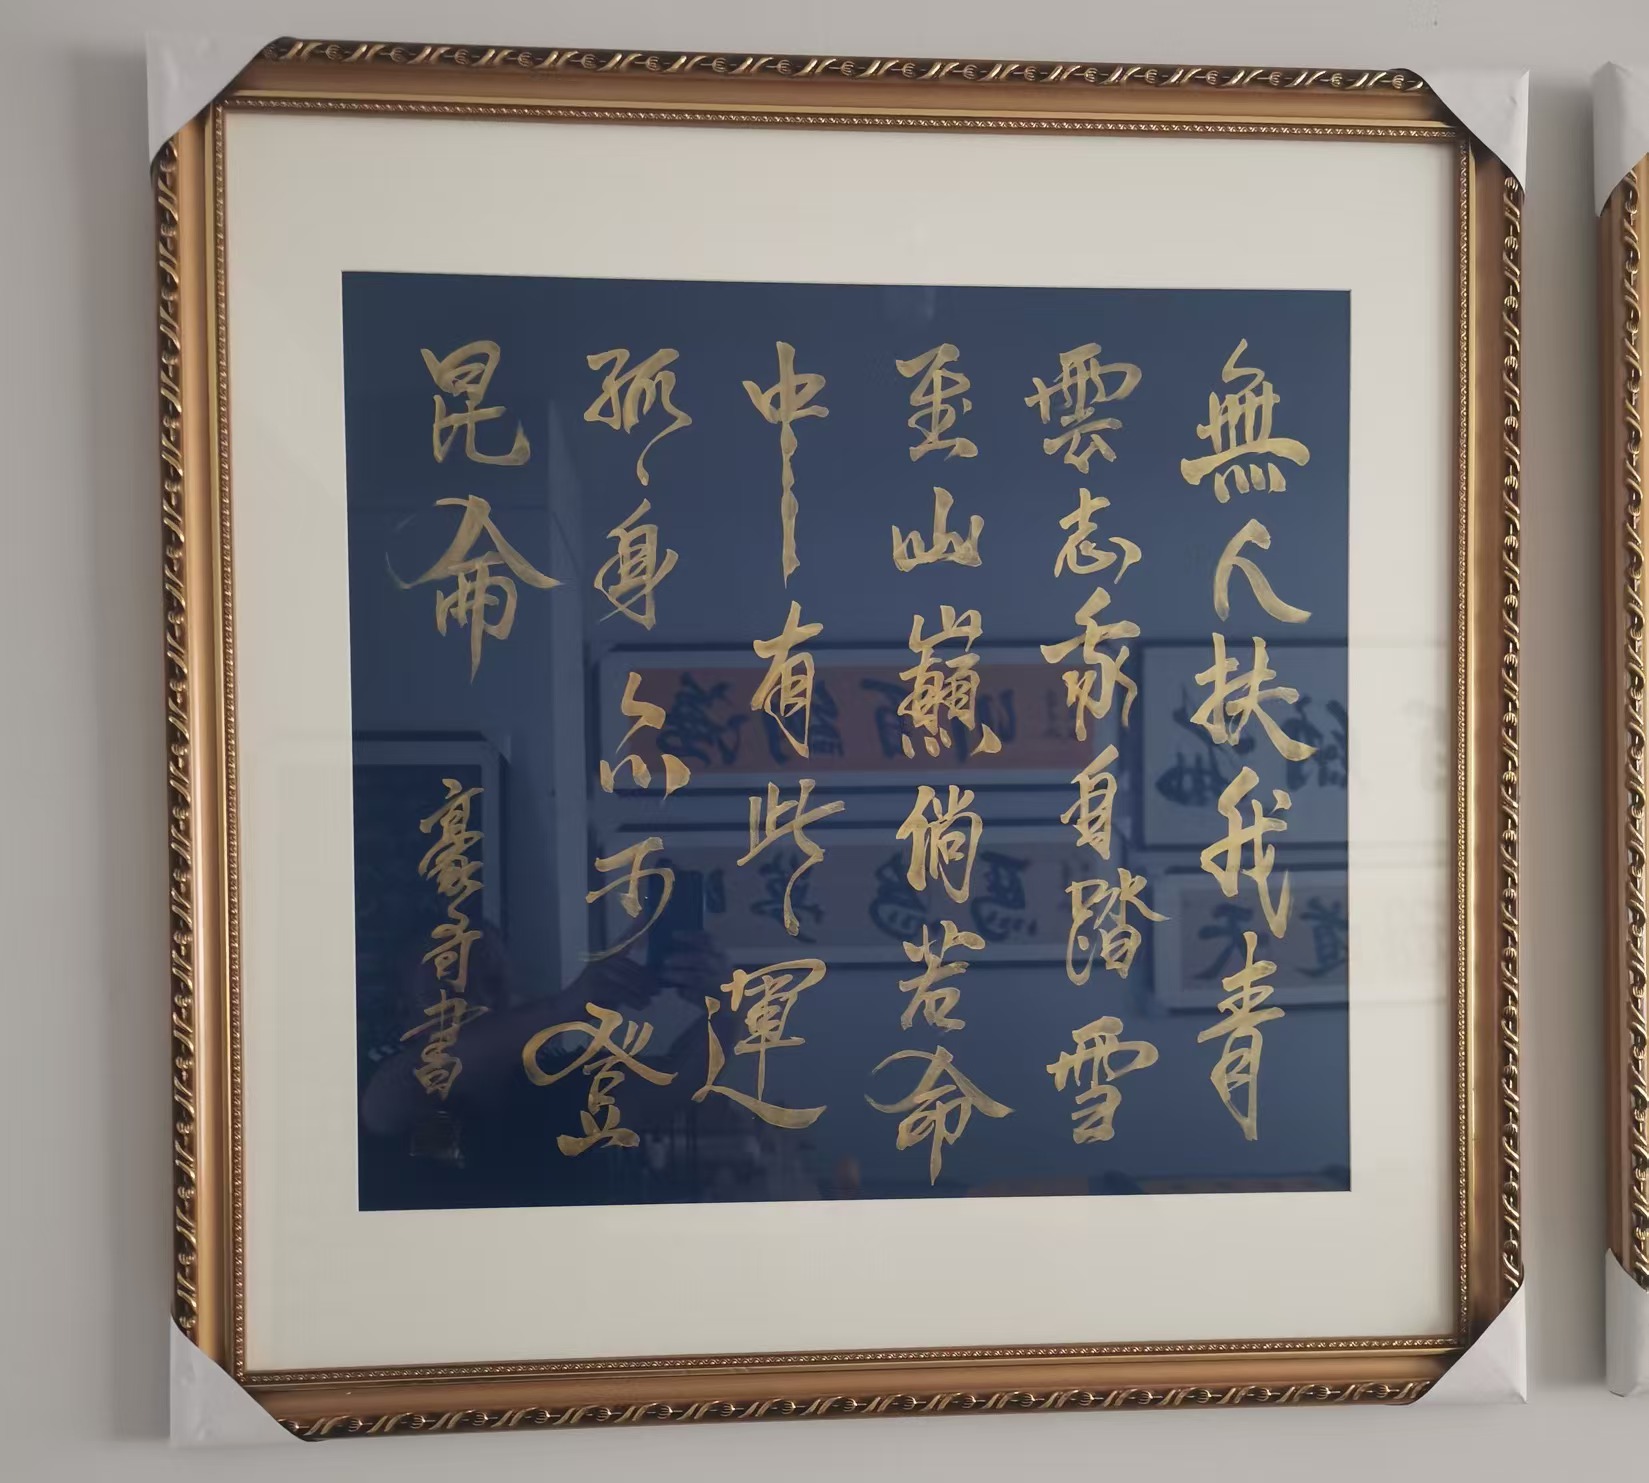 無人扶我青
雲志我自踏雪
至山巔倘若命
中有此運
孤身亦可登
昆侖
豪書